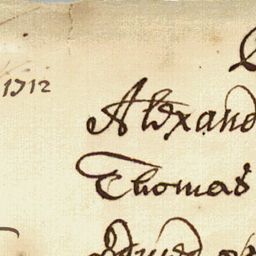 1712
Alexand
Thomas